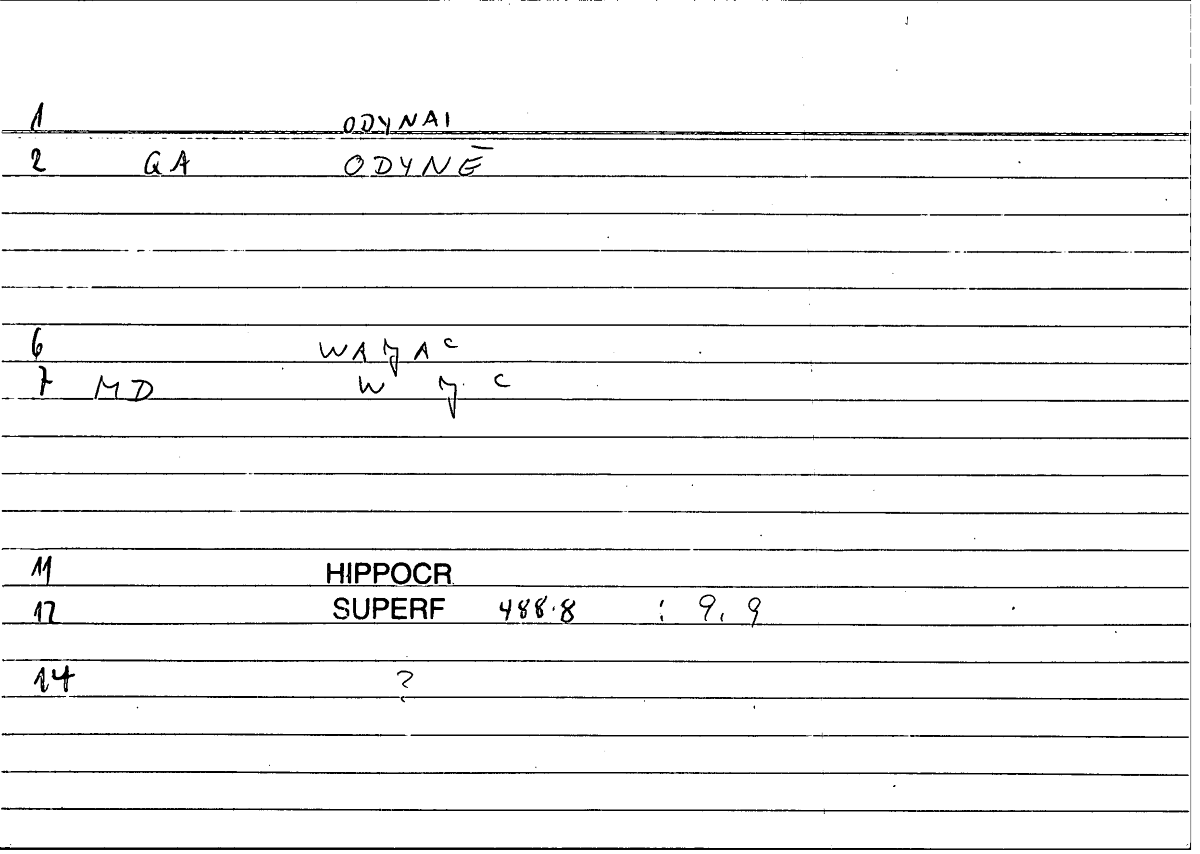 1 ODYNAI
2 GA ODYNĒ
6 WAJAC
7 MD W J C
11 HIPPOCR
12 SUPERF 488.8 : 9, 9
14 ?